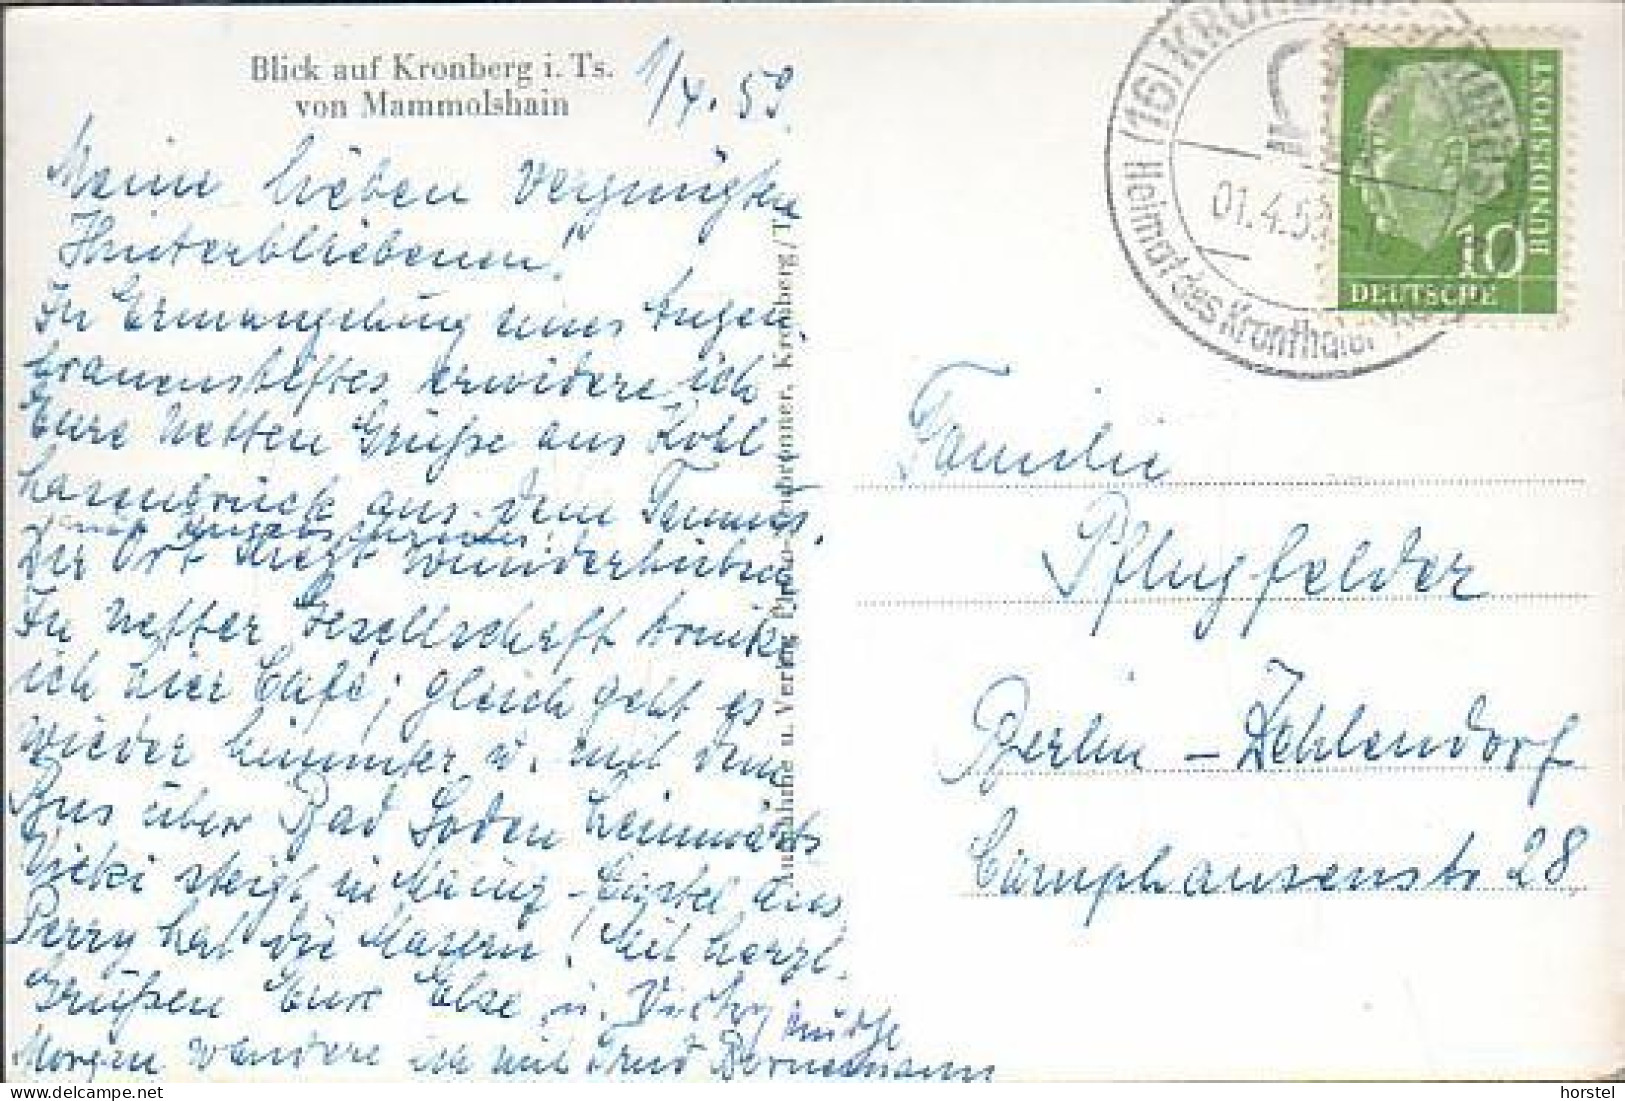 Blick auf Kronberg i. Ts.
von Mammolshain
1/4. 59
Meine lieben vergnügten
Hinterbliebenen!
In Ermangelung eines Augen-
brauenstiftes erwidere ich
Eure netten Grüße aus
aus dem Taunus.
Der Ort liegt wunderhübsch
In netter Gesellschaft trinke
ich hier Café; gleich geht es
wieder hinunter u. mit dem
Bus über Bad Soden heimwärts
Vicki steigt in Mainz-Castel aus
Perry hat die Masern! Mit herzl.
Grüßen Eure Else u. Vicky
Morgen wandere ich mit Trud Bornemann
Aufnahme u. Verlag Kronberg/Ts.
(16) KRONBERG (TAUNUS)
01.4.59
Heimat des Kronthaler
DEUTSCHE
BUNDESPOST
10
Familie
Pflugfelder
Berlin - Zehlendorf
Camphausenstr 28
horstel